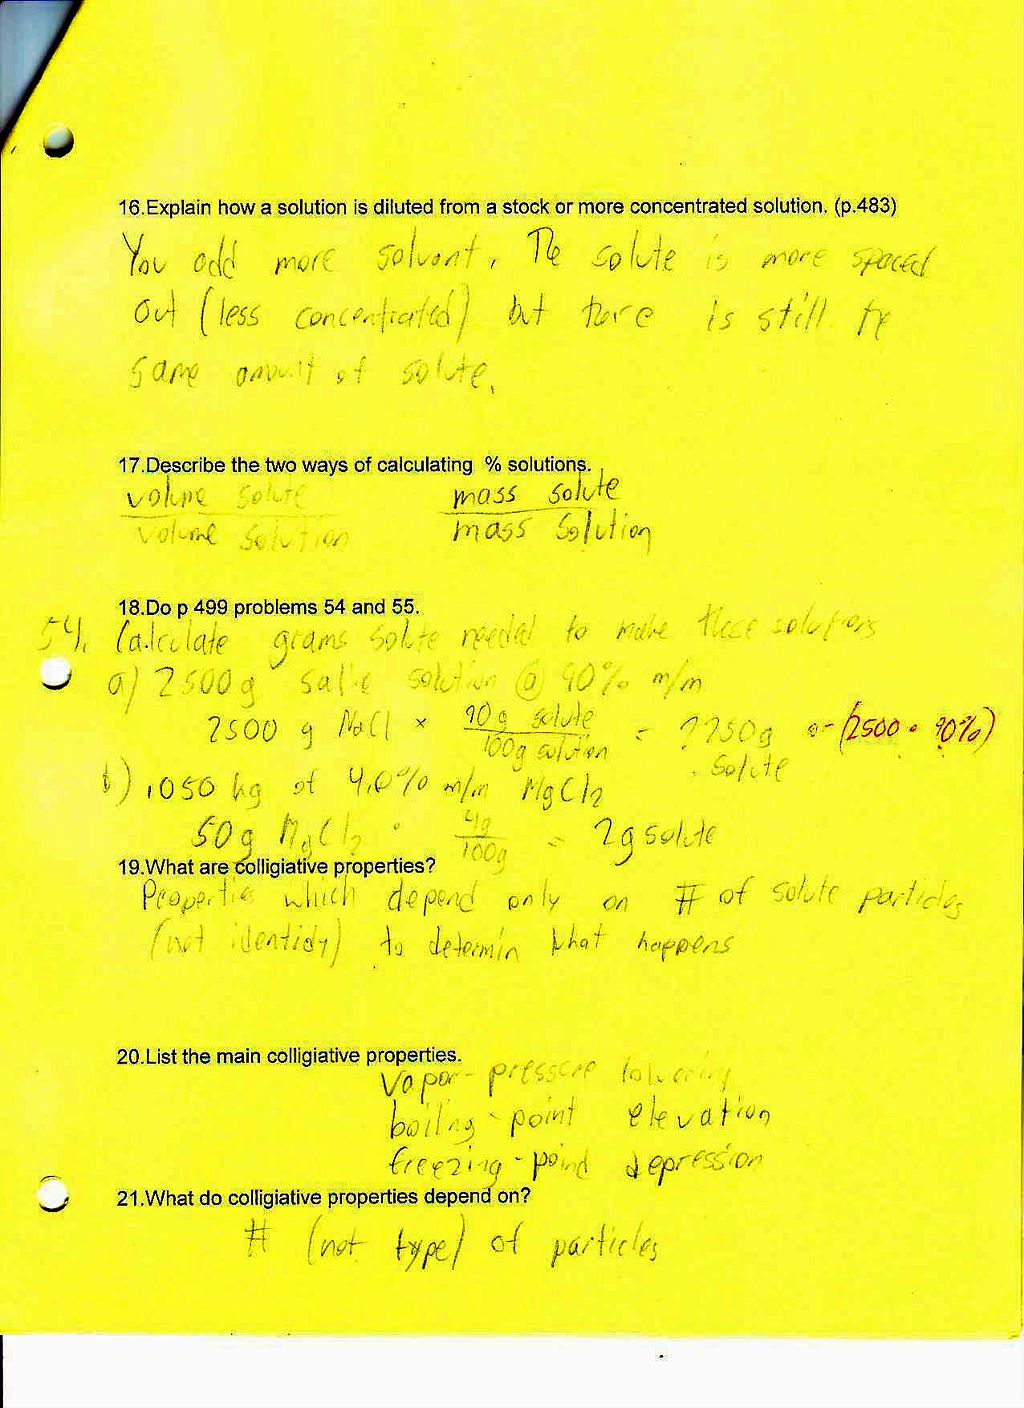 16.Explain how a solution is diluted from a stock or more concentrated solution. (p.483)
You add more solvent. The solute is more spaced
out (less concentrated) but there is still the
same amount of solute.
17.Describe the two ways of calculating % solutions.
volume solute mass solute
volume solution mass solution
18.Do p 499 problems 54 and 55.
54. Calculate grams solute needed to make these solutions
a) 2500g saline solution @ 90% m/m
2500 g NaCl × 90g solute / 100g solution = 2250g solute ← (2500 • 90%)
b) .050 kg of 4.0% m/m MgCl2
50g MgCl2 • 4g / 100g = 2g solute
19.What are colligiative properties?
Properties which depend only on # of solute particles
(not identidy) to determin what happens
20.List the main colligiative properties.
vapor-pressure lowering
boiling-point elevation
freezing-point depression
21.What do colligiative properties depend on?
# (not type) of particles